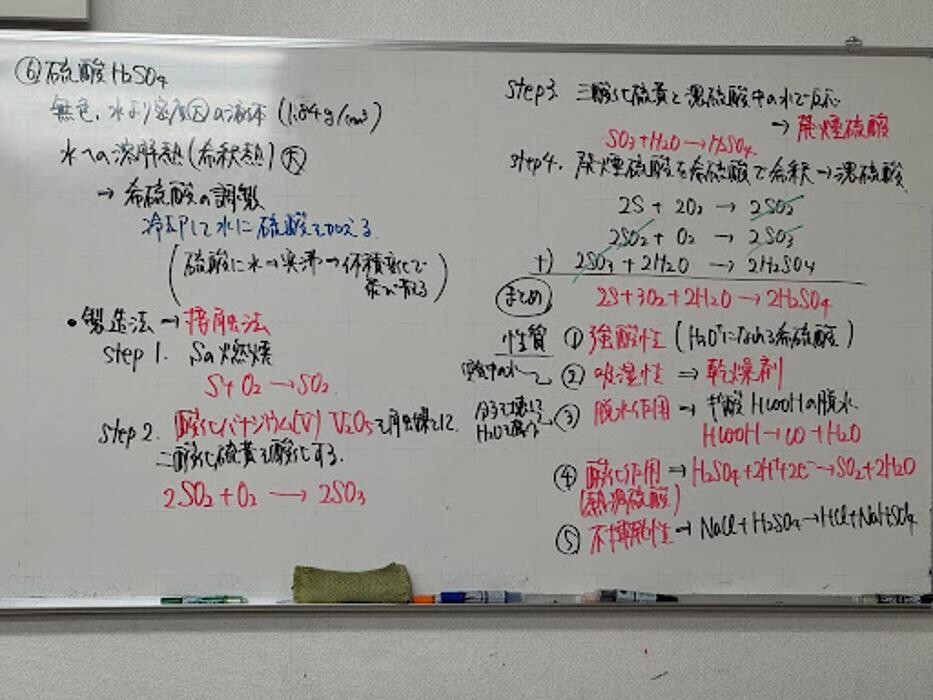 ⑥ 硫酸 H₂SO₄
無色、水より密度大の液体 (1.84g/cm³)
水への溶解熱(希釈熱)大
→ 希硫酸の調製
冷却して水に硫酸を加える
(硫酸に水→突沸→体積変化で
飛び散る)
• 製造法→接触法
step 1. Sの燃焼
S+O₂→SO₂
step 2. 酸化バナジウム(V) V₂O₅を触媒にして
二酸化硫黄を酸化する.
2SO₂+O₂→2SO₃
step 3. 三酸化硫黄と濃硫酸中の水で反応
→発煙硫酸
SO₃+H₂O→H₂SO₄.
step 4. 発煙硫酸を希硫酸で希釈→濃硫酸
2S + 2O₂ → 2SO₂
2SO₂ + O₂ → 2SO₃
+) 2SO₃ + 2H₂O → 2H₂SO₄
まとめ 2S+3O₂+2H₂O→2H₂SO₄
性質 ① 強酸性 (H₃O⁺になれる希硫酸)
空気中の水 ② 吸湿性 ⇒ 乾燥剤
分子を壊して ③ 脱水作用 → ギ酸 HCOOHの脱水
H₂Oを
HCOOH→CO+H₂O
④ 酸化作用 ⇒ H₂SO₄+2H⁺+2e⁻→SO₂+2H₂O
(熱濃硫酸)
⑤ 不揮発性 → NaCl+H₂SO₄→HCl+NaHSO₄